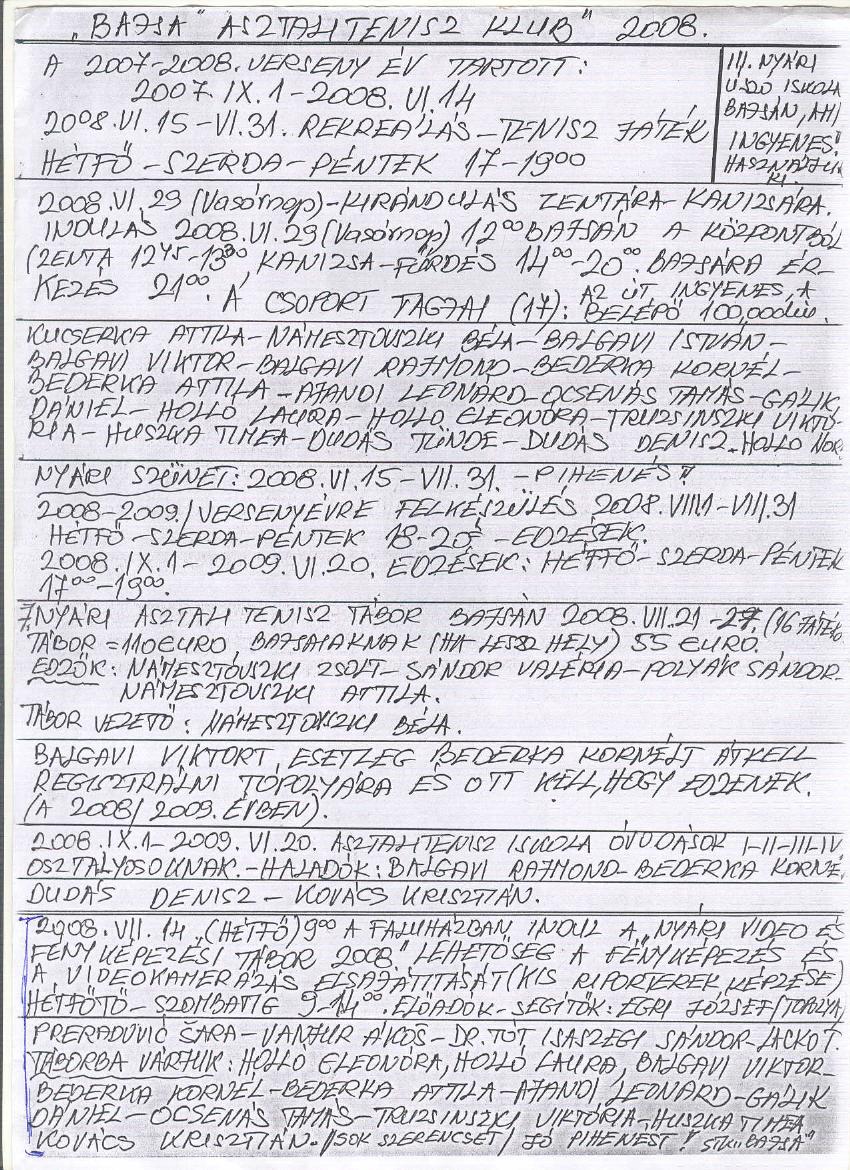 „BAJSA" ASZTALITENISZ KLUB" 2008.
A 2007-2008. VERSENY ÉV TARTOTT:
2007. IX. 1-2008. VI. 14
2008. VI. 15-VI. 31. REKREÁLÁS-TENISZ JÁTÉK
HÉTFŐ-SZERDA-PÉNTEK 17-19⁰⁰
III. NYÁRI
ÚSZÓ ISKOLA
BAJSÁN, AHI
INGYENES!
2008. VI. 29 (Vasárnap)-KIRÁNDULÁS ZENTÁRA-KANIZSÁRA.
INDULÁS 2008. VI. 29 (Vasárnap) 12⁰⁰ BAJSÁN A KÖZPONTBÓL
(ZENTA 12⁴⁵-13³⁰, KANIZSA-FÜRDÉS 14⁰⁰-20⁰⁰. BAJSÁRA ÉR-
KEZÉS 21⁰⁰. AZ ÚT INGYENES, A
A CSOPORT TAGJAI (17): BELÉPŐ 100,00 din.
KUCSERKA ATTILA-NÁMESZTOVSZKI BÉLA-BALGAVI ISTVÁN-
BALGAVI VIKTOR-BALGAVI RAJMOND-BEDERKA KORNÉL-
BEDERKA ATTILA-AJANDI LEONÁRD-OCSENÁS TAMÁS-GÁLIK
DÁNIEL-HOLLÓ LAURA-HOLLÓ ELEONÓRA-TRUZSINSZKI VIKTÓ-
RIA-HUSZKA TIMEA-DUDÁS TÜNDE-DUDÁS DENISZ-HOLLÓ NOR
NYÁRI SZÜNET: 2008. VI. 15-VII. 31. - PIHENÉS"
2008-2009./VERSENYÉVRE FELKÉSZÜLÉS 2008. VIII.1-VIII.31
HÉTFŐ-SZERDA-PÉNTEK 18-20⁰⁰-EDZÉSEK.
2008. IX. 1-2009. VI. 20. EDZÉSEK: HÉTFŐ-SZERDA-PÉNTEK
17⁰⁰-19⁰⁰.
7. NYÁRI ASZTALI TENISZ TÁBOR BAJSÁN 2008. VII. 21-27. (16 JÁTÉKO
TÁBOR = 110 EURO, BAJSAIAKNAK (HA LESZ HELY) 55 EURO.
EDZŐK: NÁMESZTOVSZKI ZSOLT-SÁNDOR VALÉRIA-POLYÁK SÁNDOR-
NÁMESZTOVSZKI ATTILA.
TÁBOR VEZETŐ: NÁMESZTOVSZKI BÉLA.
BALGAVI VIKTORT, ESETLEG BEDERKA KORNÉLT ÁTKELL
REGISZTRÁLNI TOPOLYÁRA ÉS OTT KELL, HOGY EDZENEK.
(A 2008/2009. ÉVBEN).
2008. IX. 1-2009. VI. 20. ASZTALITENISZ ISKOLA ÓVODÁSOK I-II-III-IV
OSZTÁLYOSOKNAK.-HALADÓK: BALGAVI RAJMOND-BEDERKA KORNÉ
DUDÁS DENISZ-KOVÁCS KRISZTIÁN.
2008. VII. 14. (HÉTFŐ) 9⁰⁰ A FALUHÁZBAN INDUL A „NYÁRI VIDEO ÉS
FÉNYKÉPEZÉSI TÁBOR 2008" LEHETŐSÉG A FÉNYKÉPEZÉS ÉS
A VIDEOKAMERÁZÁS ELSAJÁTITÁSÁT (KIS RIPORTEREK KÉPZÉSE)
HÉTFŐTŐ-SZOMBATIG 9-14⁰⁰. ELŐADÓK-SEGÍTŐK: EGRI JÓZSEF/TOPOLYA/
PRERADOVIĆ ŠARA-VANJUR ÁKOS-DR. TÓT ISASZEGI SÁNDOR-LACKÓ T.
TÁBORBA VÁRJUK: HOLLÓ ELEONÓRA, HOLLÓ LAURA, BALGAVI VIKTOR-
BEDERKA KORNÉL-BEDERKA ATTILA-AJANDI LEONÁRD-GÁLIK
DÁNIEL-OCSENÁS TAMÁS-TRUZSINSZKI VIKTÓRIA-HUSZKA TIMEA
KOVÁCS KRISZTIÁN./SOK SZERENCSÉT/ JÓ PIHENÉST! STK „BAJSA"